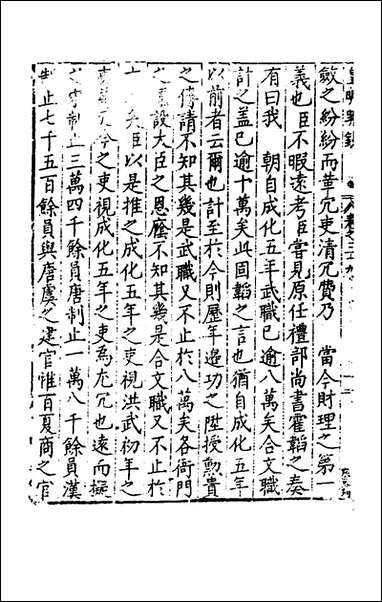 歛之紛紛而華冗吏清冗費乃　當今財理之第一
義也臣不暇遠考臣嘗見原任禮部尚書霍韜之奏
有曰我　朝自成化五年武職已逾八萬矣合文職
計之蓋已逾十萬矣此固韜之言也猶自成化五年
以前者云爾也計至於今則歷年邊功之陞授勳貴
之傳請不知其幾是武職又不止於八萬矣各衙門
之添設大臣之恩廕不知其幾是合文職又不止於
十萬矣臣以是推之成化五年之吏視洪武初年之
今之吏視成化五年之吏為尤冗也遠而擬
之宋制止三萬四千餘員唐制止一萬八千餘員漢
制止七千五百餘員與唐虞之建官惟百夏商之官